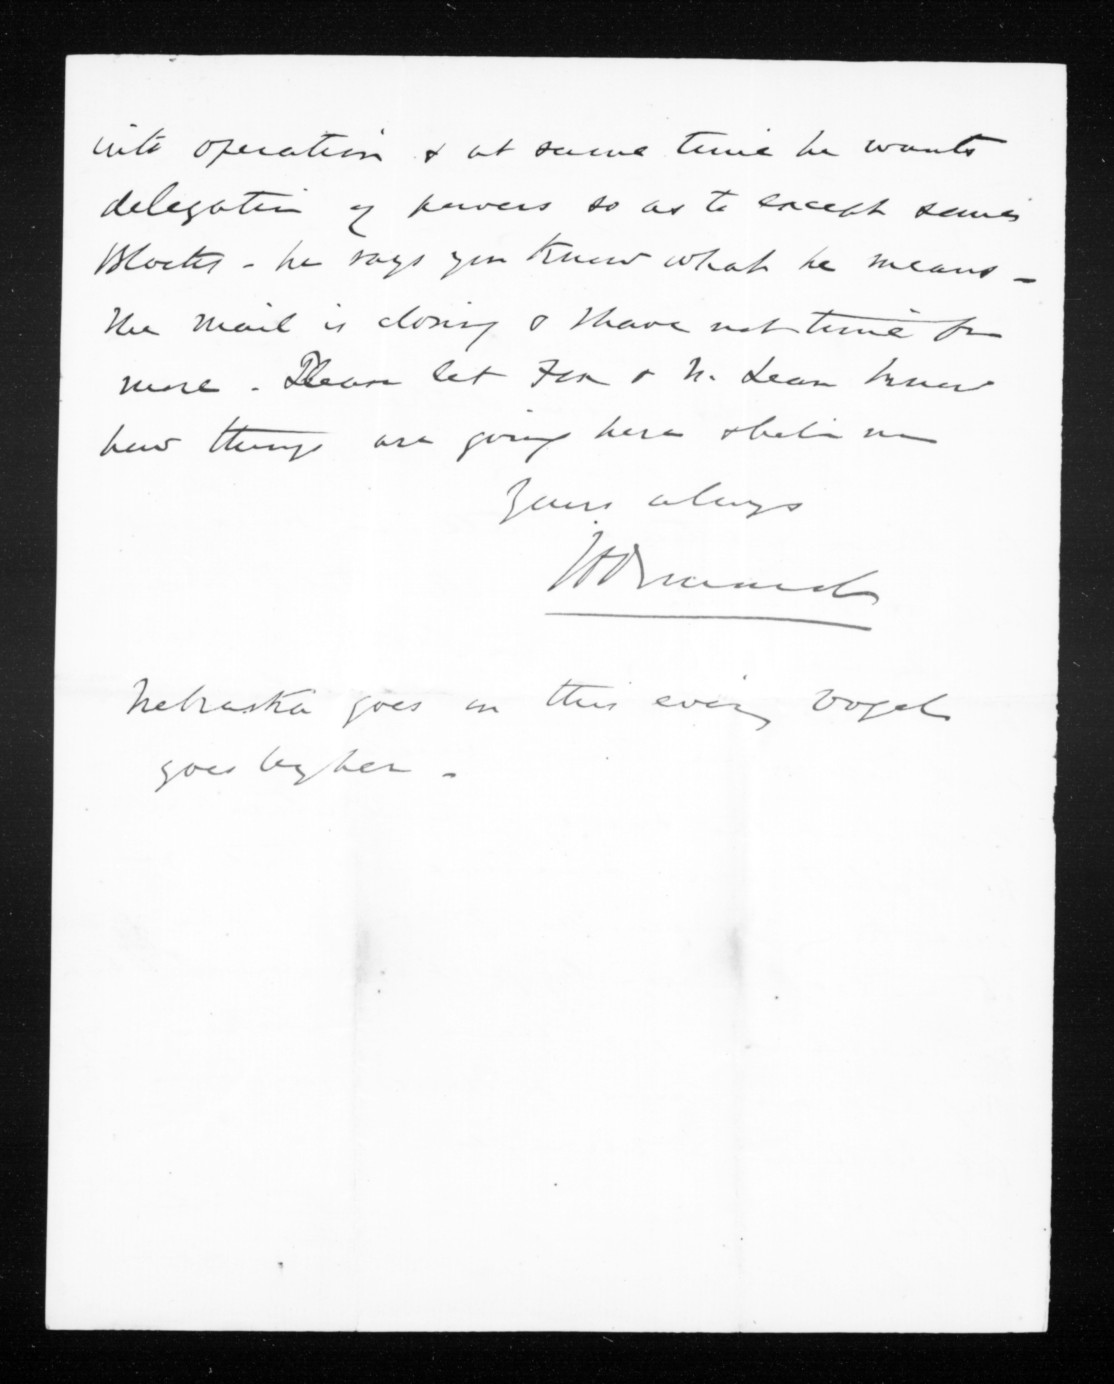 into operation & at same time he wants
delegation of powers so as to except some
Blocks - he says you know what he means -
The Mail is closing & I have not time for
more. Please let Fox & McLean know
how things are going here & belie me
Yours always
Nebraska goes on this eveng Vogel
goes by her -